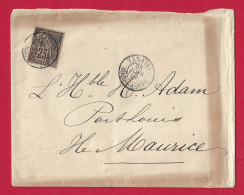 25
L'Hble H. Adam
Port Louis
Ile Maurice